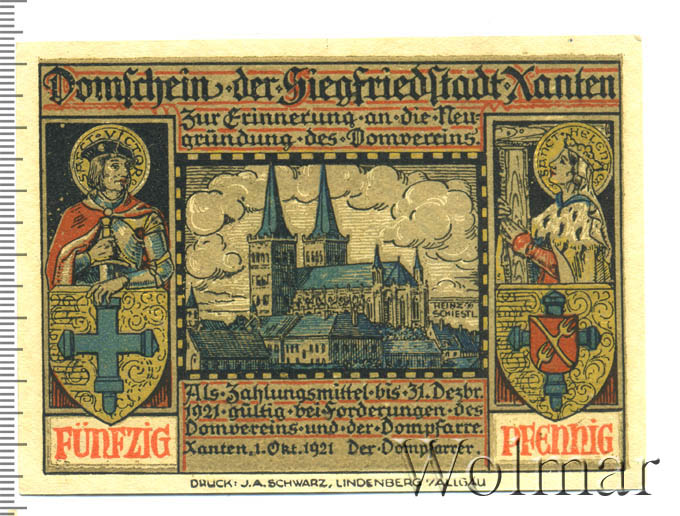 Domschein · der · Siegfriedstadt · Xanten
Zur Erinnerung · an · die · Neu-
gründung · des · Domvereins.
SANCT VICTOR
SANCT · HELENA
HEINZ
SCHIESTL
Als · Zahlungsmittel · bis · 31. Dezbr.
1921 · gültig · bei · Forderungen · des
Domvereins · und · der · Dompfarre.
Xanten, 1. Okt. 1921 Der · Dompfarrer.
FÜNFZIG
PFENNIG
DRUCK: J. A. SCHWARZ, LINDENBERG I/ALLGÄU
Wolmar